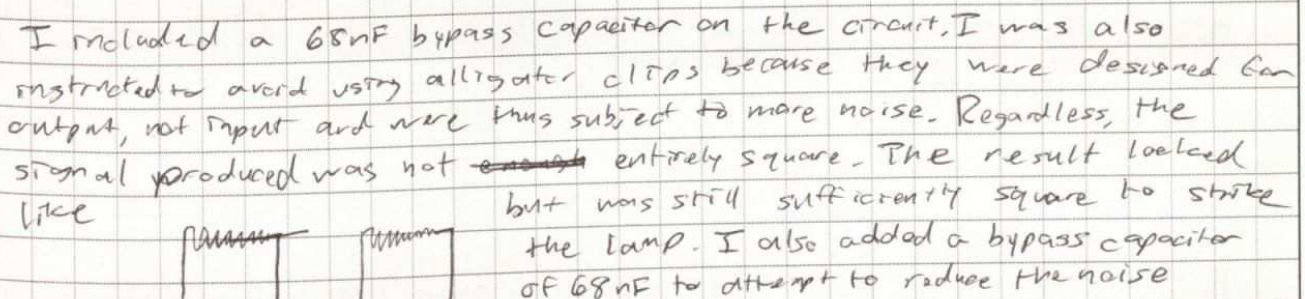 I included a 68nF bypass capacitor on the circuit. I was also
instructed to avoid using alligator clips because they were designed for
output, not input and were thus subject to more noise. Regardless, the
signal produced was not enough entirely square. The result looked
like
but was still sufficiently square to strike
the lamp. I also added a bypass capacitor
of 68nF to attempt to reduce the noise